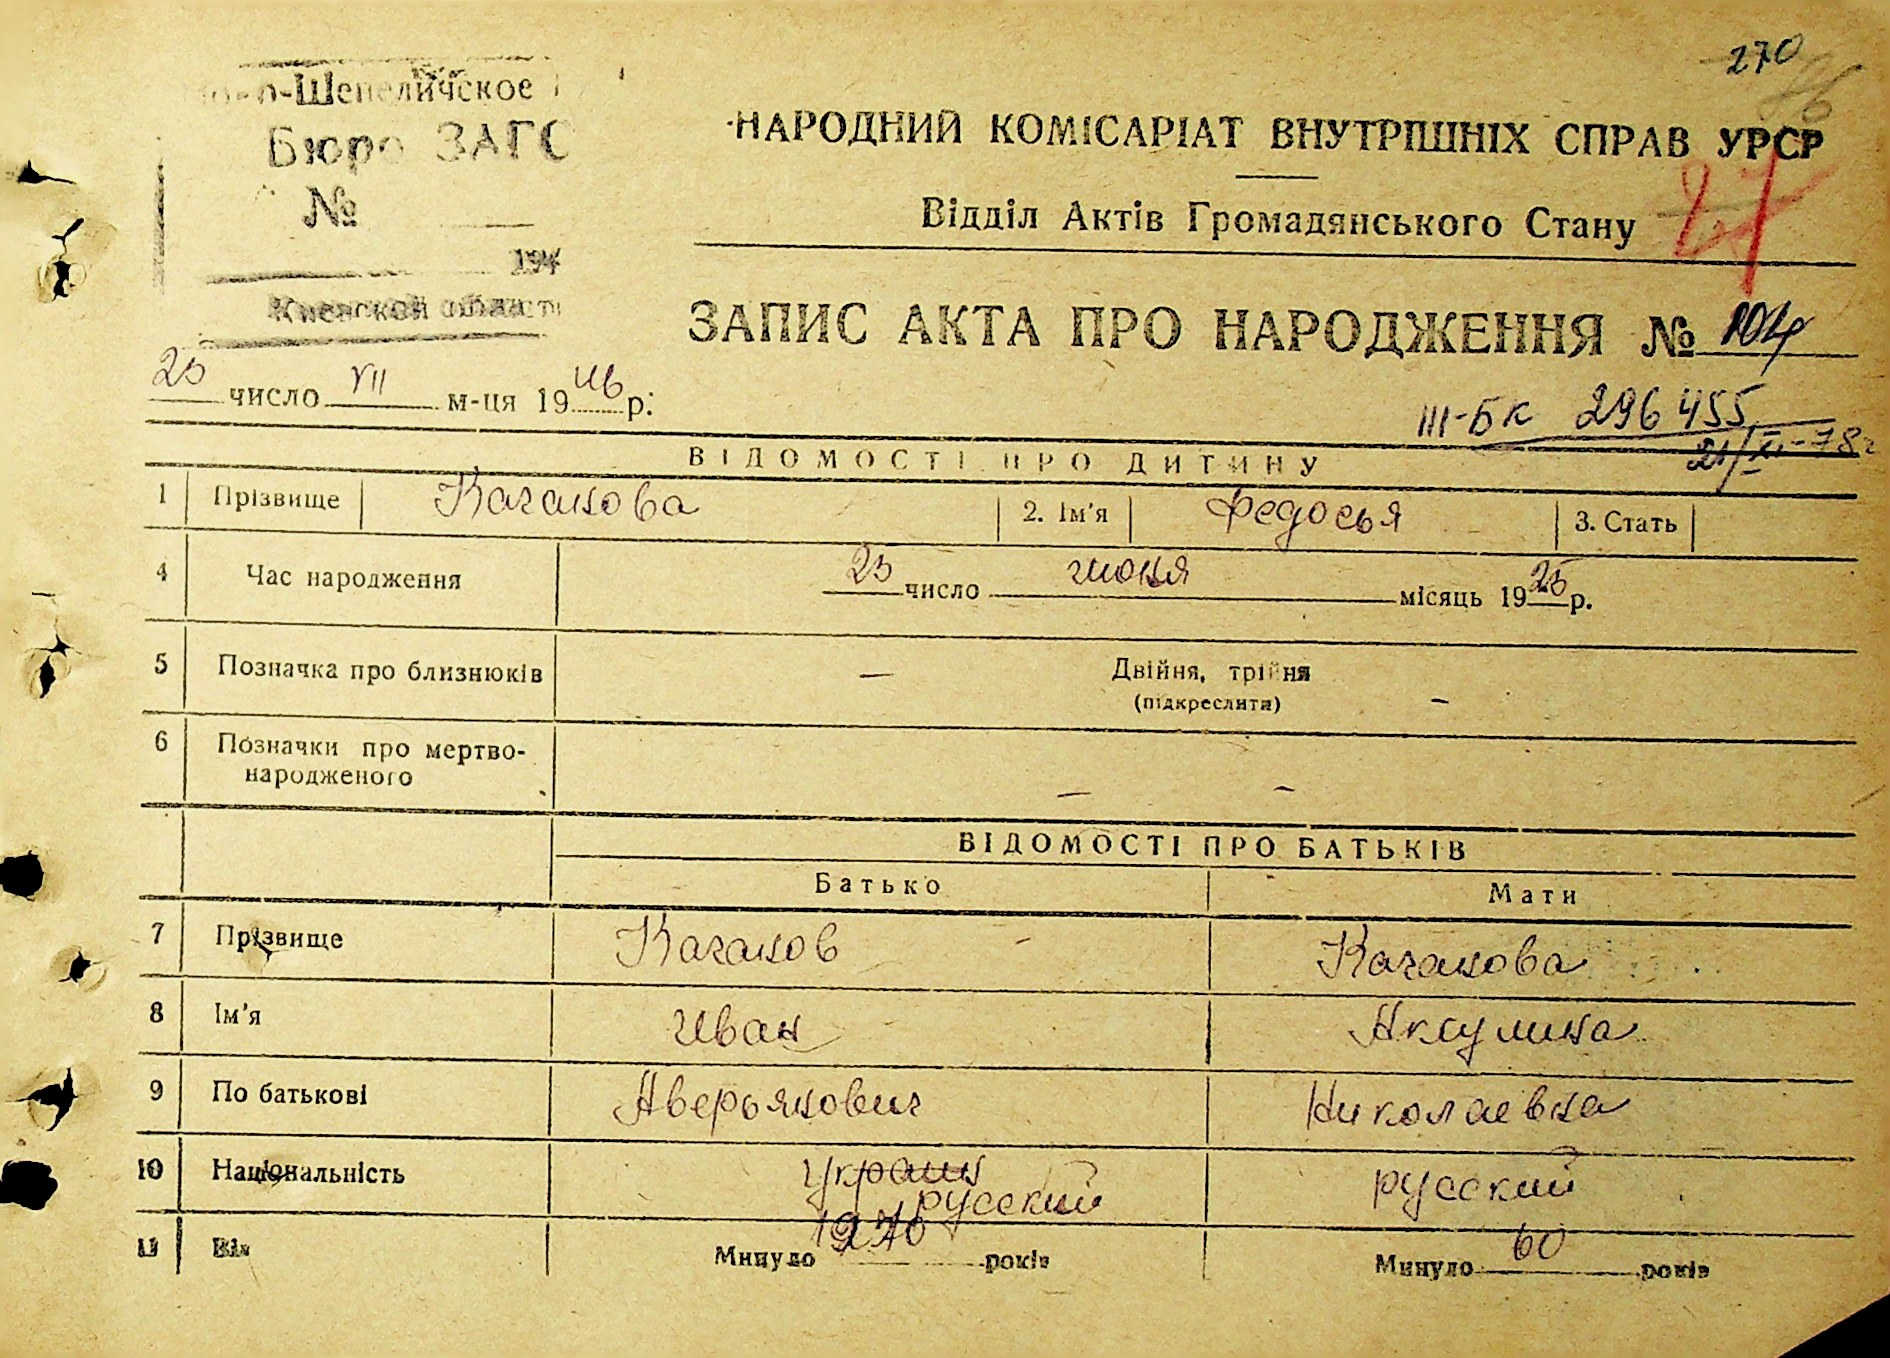 270
46
о-Шепеличское
Бюро ЗАГС
№
194
Киевской области
НАРОДНИЙ КОМІСАРІАТ ВНУТРІШНІХ СПРАВ УРСР
47
Відділ Актів Громадянського Стану
ЗАПИС АКТА ПРО НАРОДЖЕННЯ № 104
23 число VII м-ця 1946 р.
III-БК 296455
21/XI-78г
ВІДОМОСТІ ПРО ДИТИНУ
1 Прізвище Качанова 2. Ім'я Федосья 3. Стать
4 Час народження 23 число июня місяць 1925 р.
5 Позначка про близнюків — Двійня, трійня
(підкреслити) —
6 Позначки про мертво-
народженого — —
ВІДОМОСТІ ПРО БАТЬКІВ
Батько Мати
7 Прізвище Качанов Качанова
8 Ім'я Иван Акулина
9 По батькові Аверьянович Николаевна
10 Національність украин русский русский
11 Вік Минуло 70 років Минуло 60 років